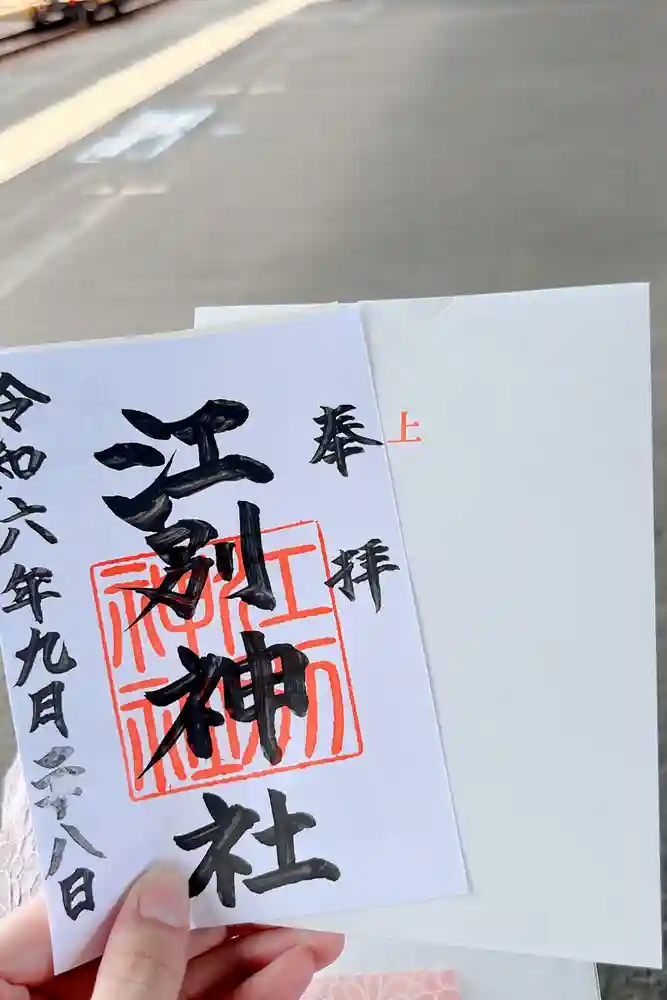 上
奉拝
江別神社
江別神社
令和六年九月二十八日